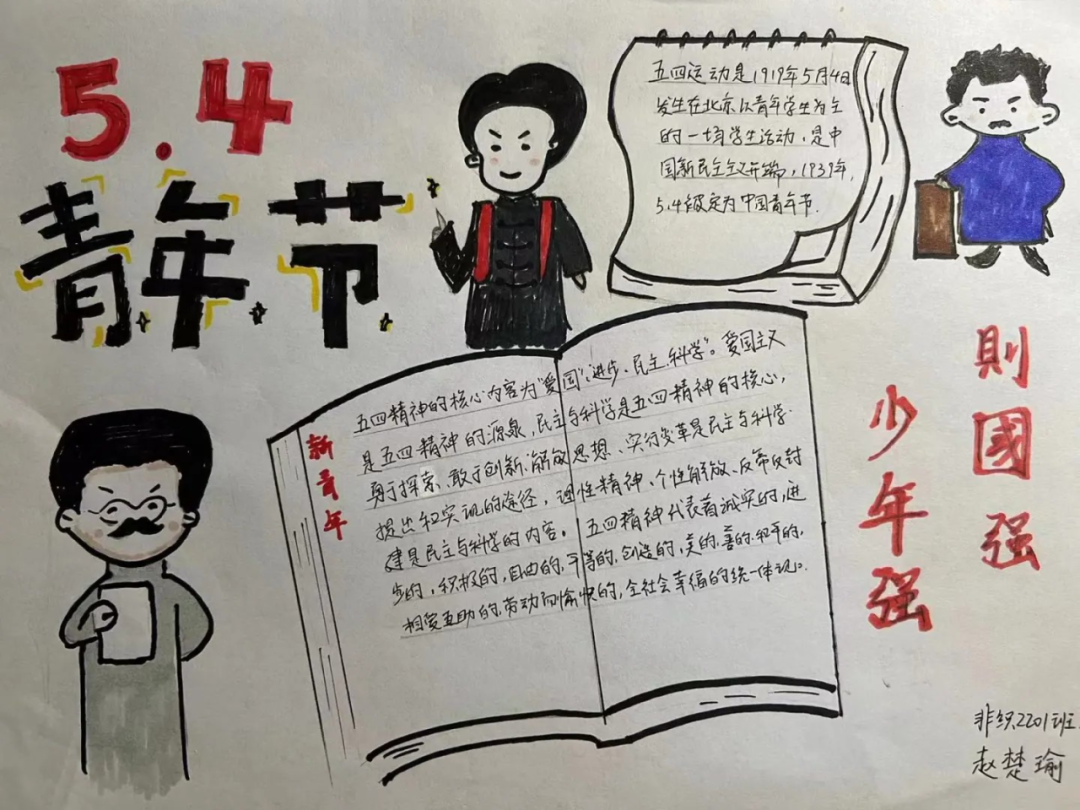 5.4
青年节
五四运动是1919年5月4日
发生在北京以青年学生为主
的一场学生活动,是中
国新民主主义开端,1939年,
5.4被定为中国青年节.
新青年
五四精神的核心内容为“爱国”、进步、民主、科学”。爱国主义
是五四精神的源泉,民主与科学是五四精神的核心,
勇于探索、敢于创新、解放思想、实行变革是民主与科学
提出和实现的途径,理性精神、个性解放、反帝反封
建是民主与科学的内容。五四精神代表着诚实的,进
步的,积极的,自由的,平等的,创造的,美的,善的,和平的,
相爱互助的,劳动而愉快的,全社会幸福的统一体现。
少年强
則國强
非织2201班
赵楚瑜